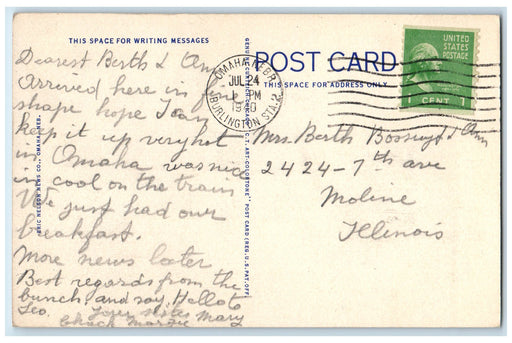 THIS SPACE FOR WRITING MESSAGES
Dearest Berth & Ann
Arrived here in fine
shape hope I can
keep it up very hot
in Omaha was nice
in cool on the train
We just had our
breakfast.
More news later
Best regards from the
bunch and say Hello to
Leo.
Mary
Chuck Margie
ERIC NELSON NEWS CO., OMAHA, NEB.
GENUINE CURTEICH-CHICAGO "C.T. ART-COLORTONE" POST CARD (REG. U.S. PAT. OFF.)
POST CARD
THIS SPACE FOR ADDRESS ONLY
OMAHA, NEBR.
JUL 24
PM
1940
BURLINGTON STA. 2
UNITED
STATES
POSTAGE
1 CENT 1
Mrs. Berth & Ann
2424-7th ave
Moline
Illinois